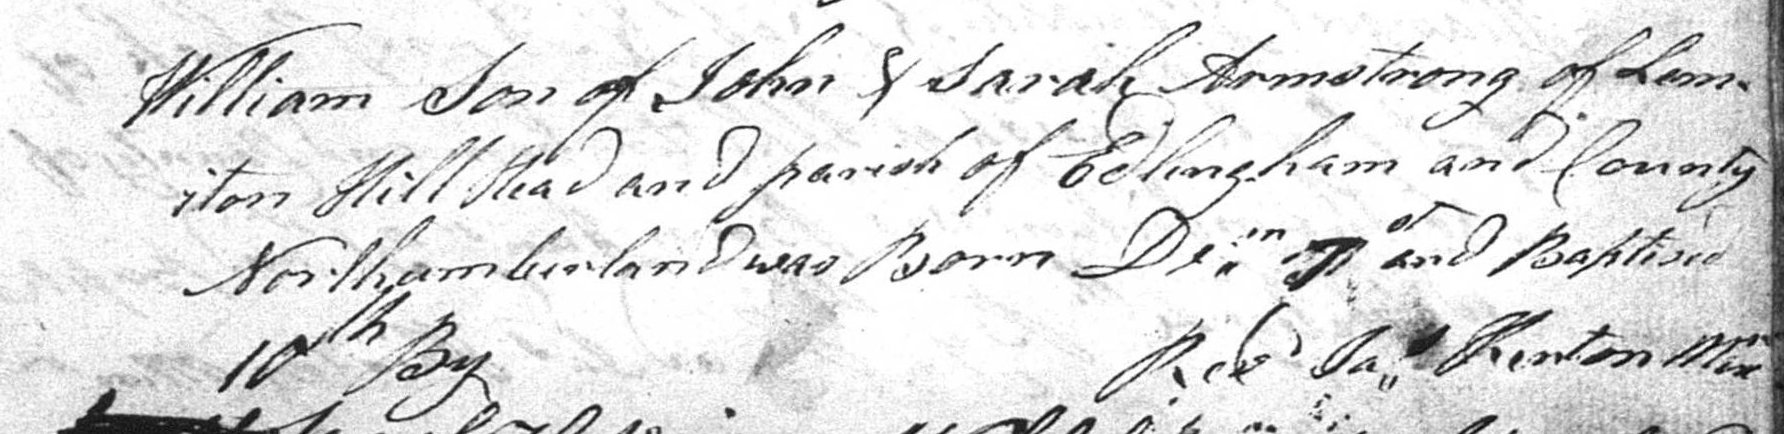 William Son of John & Sarah Armstrong of Lem-
iton Hill Head and parish of Edlingham and County
Northumberland was Born and Baptised
10th By Revd Jas Kenton Minr